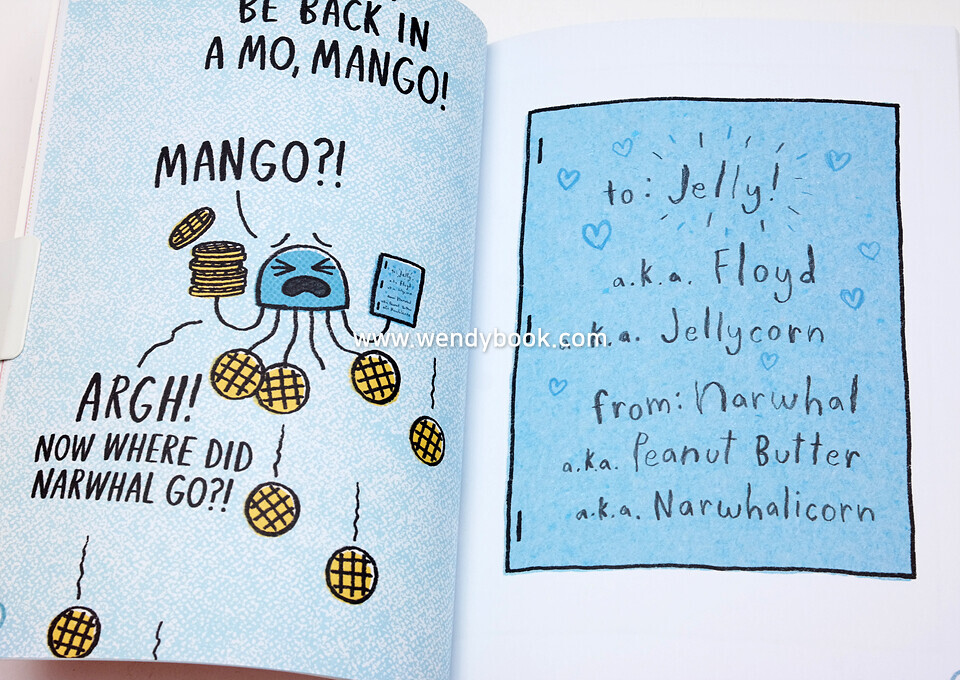 BE BACK IN
A MO, MANGO!
MANGO?!
ARGH!
NOW WHERE DID
NARWHAL GO?!
to: Jelly!
a.k.a. Floyd
a.k.a. Jellycorn
from: Narwhal
a.k.a. Peanut Butter
a.k.a. Narwhalicorn
www.wendybook.com